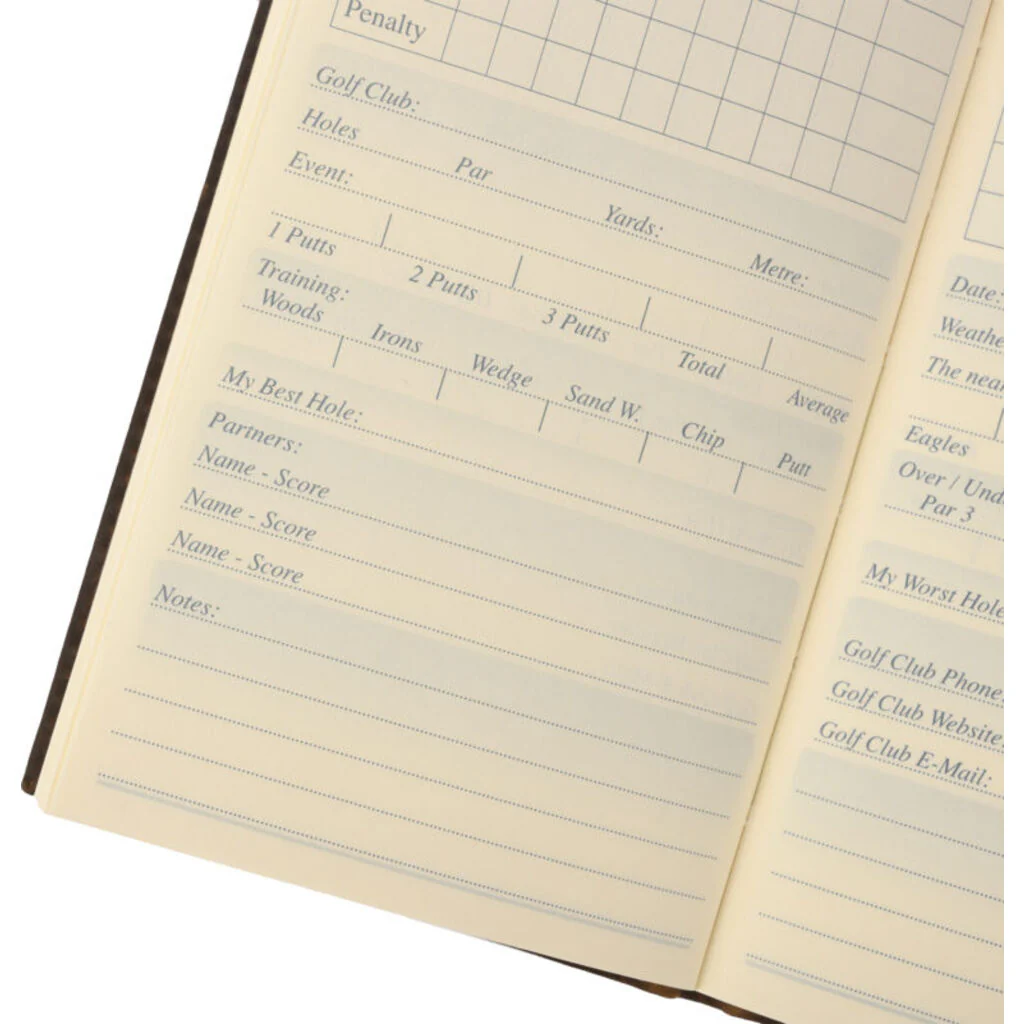 Penalty
Golf Club:
Holes Par Yards: Metre:
Event:
1 Putts 2 Putts 3 Putts Total Average
Training:
Woods Irons Wedge Sand W. Chip Putt
My Best Hole:
Partners:
Name - Score
Name - Score
Name - Score
Notes:
Date:
The
Eagles
Over /
Par 3
My Worst Hole
Golf Club Phone:
Golf Club Website:
Golf Club E-Mail: